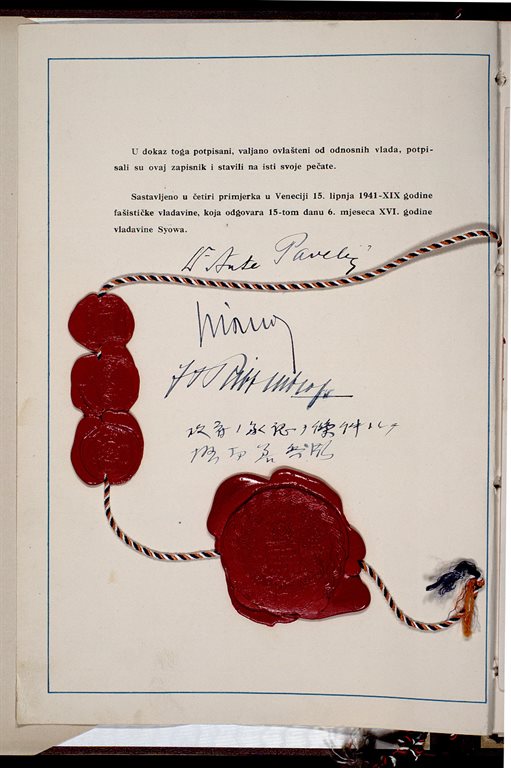 U dokaz toga potpisani, valjano ovlašteni od odnosnih vlada, potpi-
sali su ovaj zapisnik i stavili na isti svoje pečate.
Sastavljeno u četiri primjerka u Veneciji 15. lipnja 1941-XIX godine
fašističke vladavine, koja odgovara 15-tom danu 6. mjeseca XVI. godine
vladavine Syowa.
Dr Ante Pavelić
政府ノ承認ノ條件トシテ